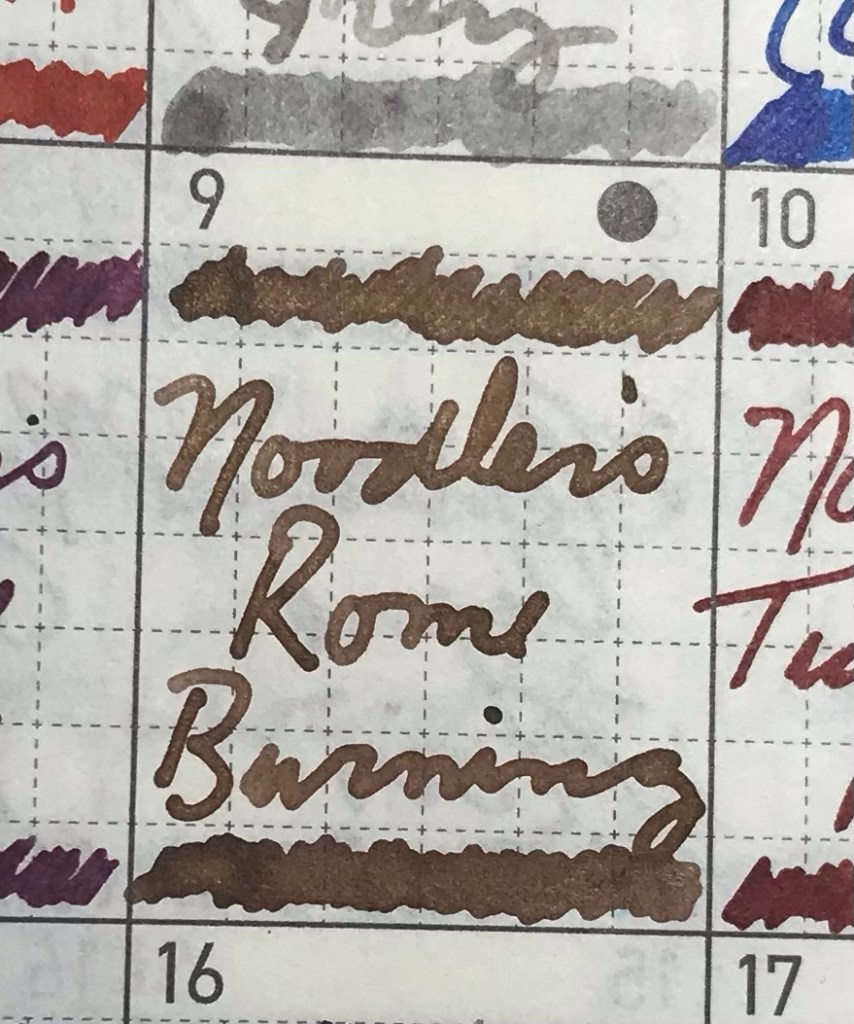 Grey
9
10
Noodler's
Rome
Burning
16
17